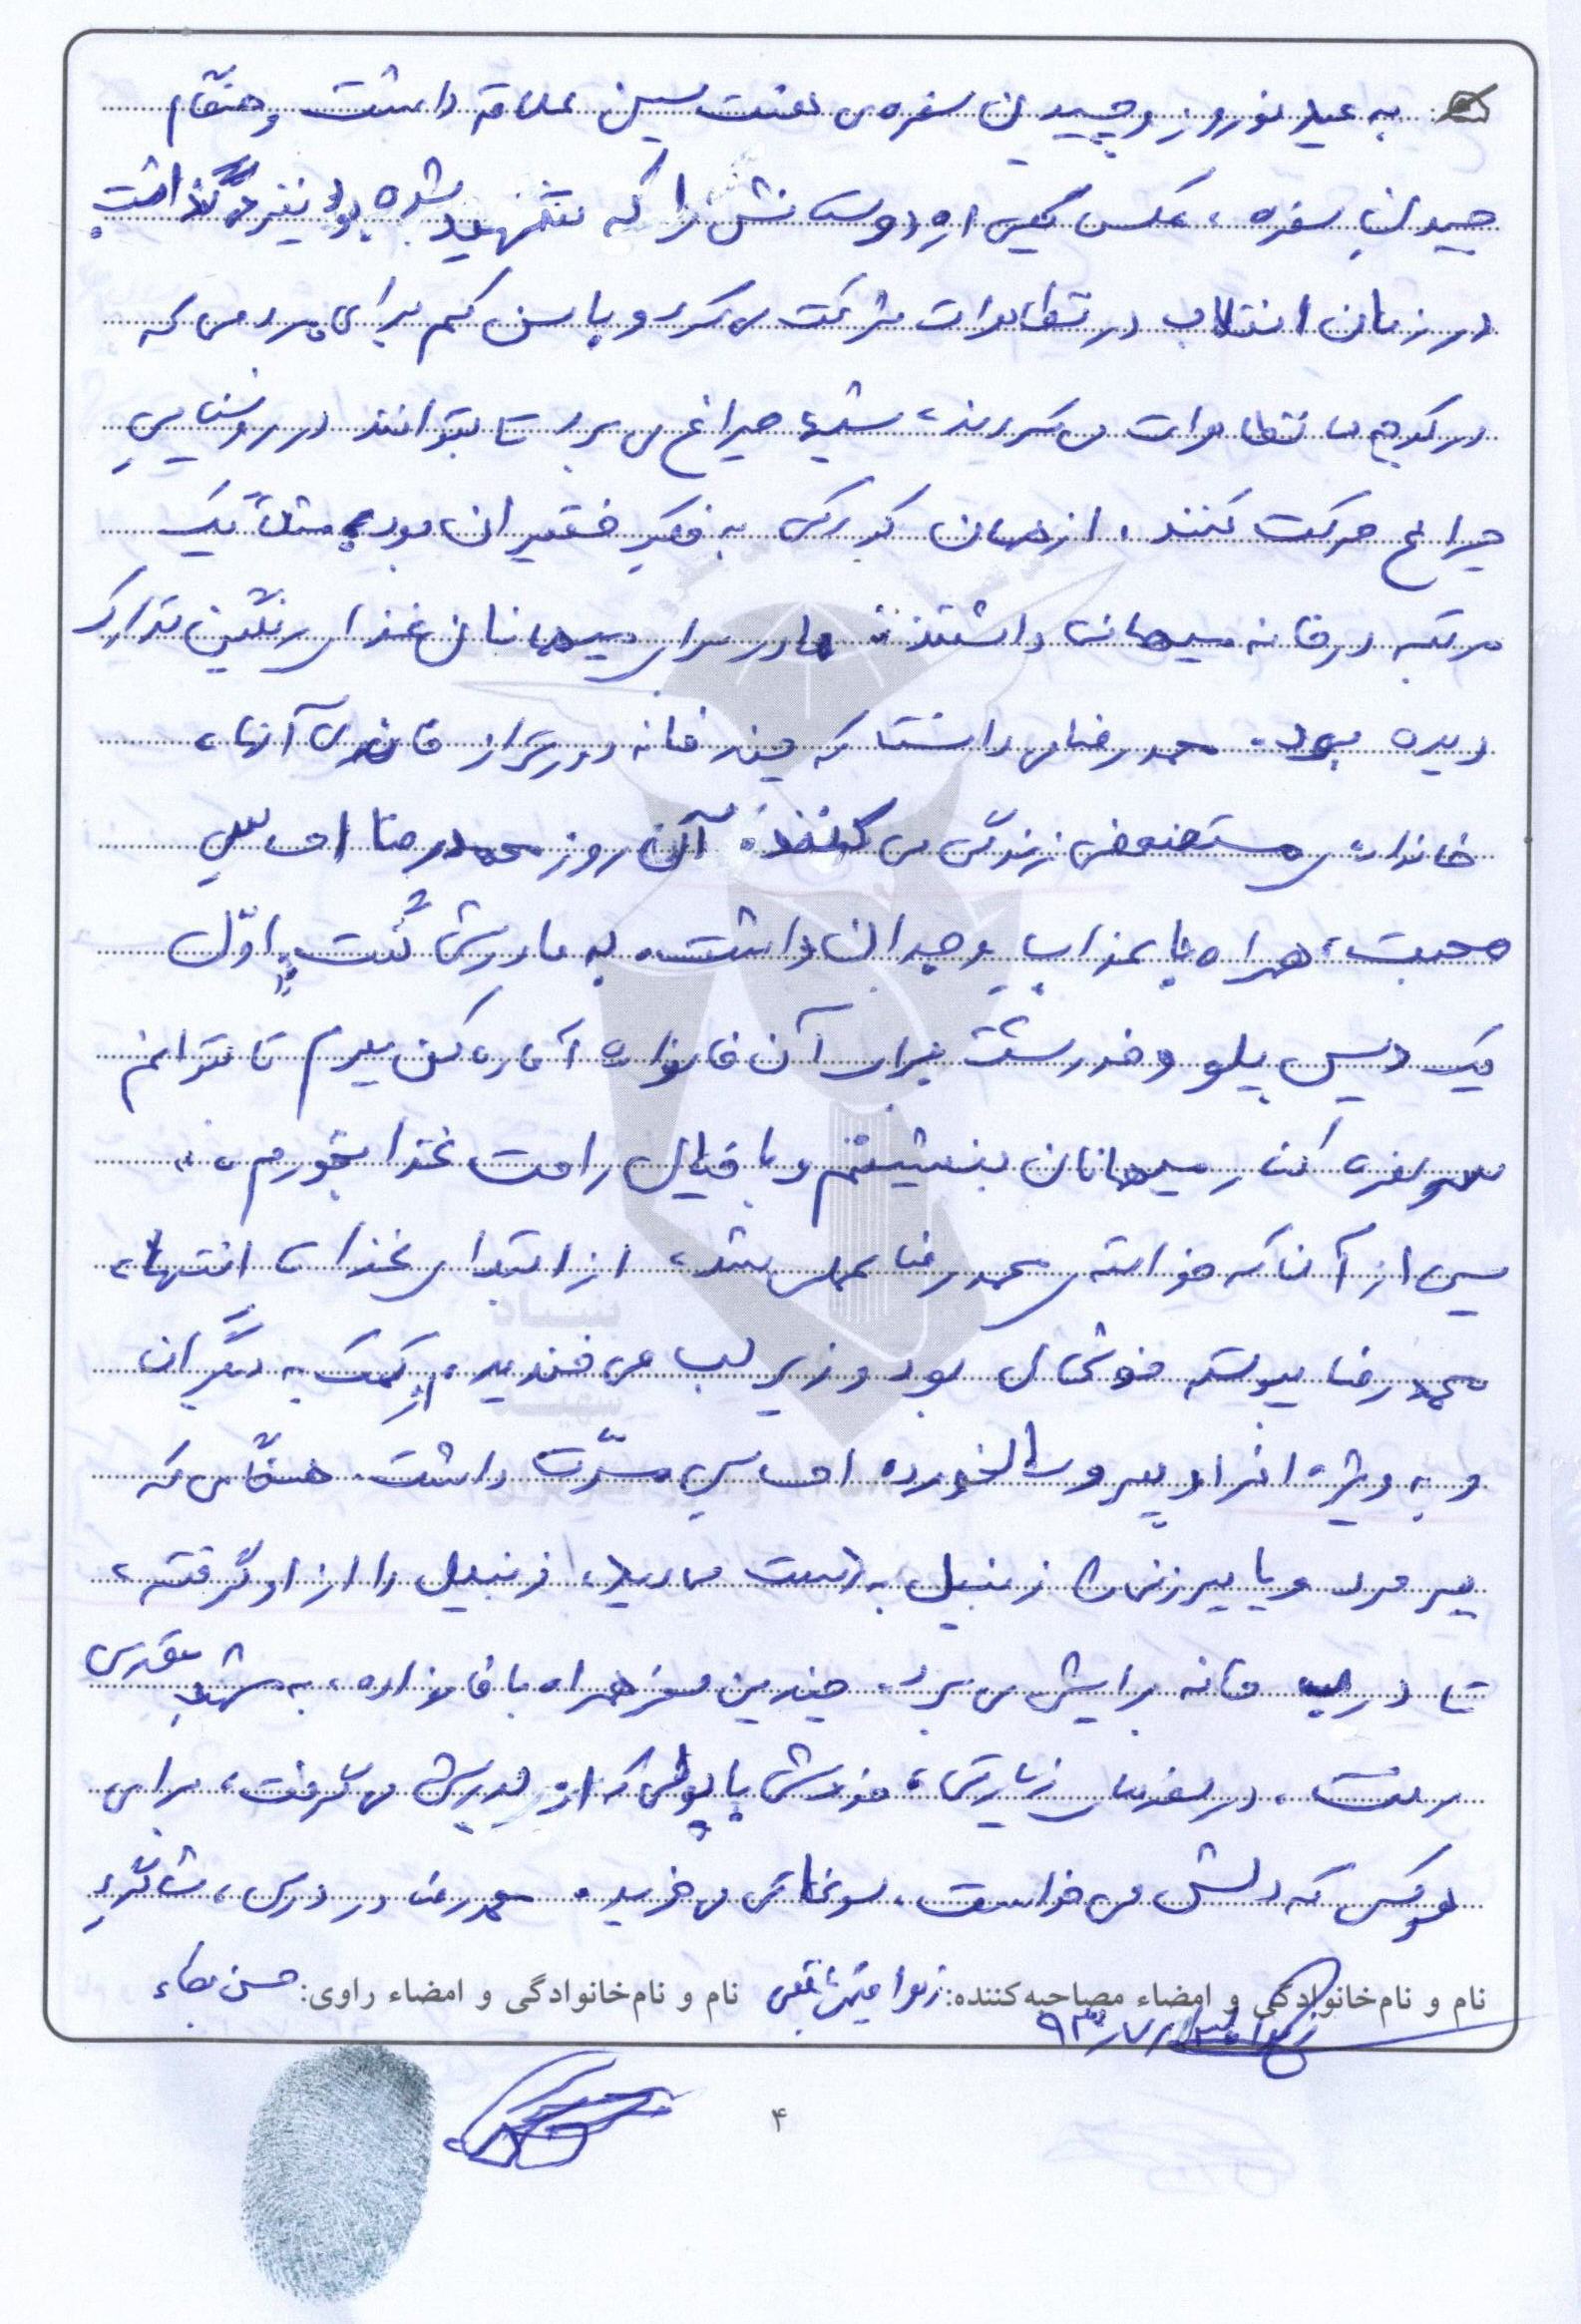 به عید نوروز و چیدن سفره‌ی هفت سین علاقه داشت و هنگام
چیدن سفره، عکس یکی از دوستانش را که شهید شده بود نیز می‌گذاشت.
در زمان انقلاب در تظاهرات شرکت می‌کرد و با سن کم برای مردمی که
در کوچه‌ها تظاهرات می‌کردند، شبها چراغ می‌برد تا بتوانند در روشنایی
چراغ حرکت کنند. از همان کودکی به فکر فقیران بود. مثلاً یک
مرتبه در خانه میهمانی داشتند. مادر برای میهمانان غذای رنگین تدارک
دیده بود. محمدرضا می‌دانست که چند خانه دورتر از خانه‌ی آنها،
خانواده‌ی مستضعفی زندگی می‌کنند. آن روز محمدرضا احساس
محبت، همراه با عذاب وجدان داشت. به مادرش گفت: اوّل
یک دیس پلو و خورشت برای آن خانواده آماده کن ببرم تا بتوانم
سر سفره کنار میهمانان بنشینم و با خیال راحت غذا بخورم.
پس از آن که خواسته‌ی محمدرضا عملی شد، از ابتدای غذا تا انتها،
محمدرضا پیوسته خوشحال بود و زیر لب می‌خندید. از کمک به دیگران
و به ویژه افراد پیر و سالخورده احساس مسرّت داشت. هنگامی که
پیر مرد و یا پیرزنی را زنبیل به دست می‌دید، زنبیل را از او گرفته،
تا درب خانه برایش می‌برد. چندین سفر همراه با خانواده، به مشهد مقدس
رفت. در سفرهای زیارتی، خودش با پولی که از پدرش می‌گرفت، برای
هر کس که دلش می‌خواست، سوغاتی می‌خرید. محمدرضا در درس، شاگرد
نام و نام‌خانوادگی و امضاء مصاحبه‌کننده: زهرا نام و نام‌خانوادگی و امضاء راوی: حسن
۴